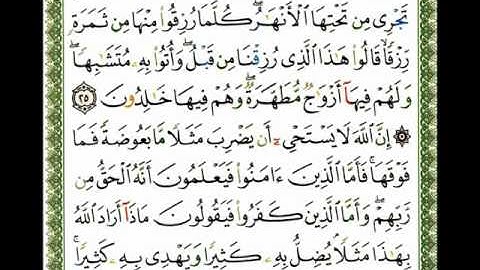 تَجْرِى مِن تَحْتِهَا ٱلْأَنْهَٰرُ ۖ كُلَّمَا رُزِقُوا۟ مِنْهَا مِن ثَمَرَةٍ
رِّزْقًا ۙ قَالُوا۟ هَٰذَا ٱلَّذِى رُزِقْنَا مِن قَبْلُ ۖ وَأُتُوا۟ بِهِۦ مُتَشَٰبِهًا ۖ
وَلَهُمْ فِيهَآ أَزْوَٰجٌ مُّطَهَّرَةٌ ۖ وَهُمْ فِيهَا خَٰلِدُونَ ٢٥
۞ إِنَّ ٱللَّهَ لَا يَسْتَحْىِۦٓ أَن يَضْرِبَ مَثَلًا مَّا بَعُوضَةً فَمَا
فَوْقَهَا ۚ فَأَمَّا ٱلَّذِينَ ءَامَنُوا۟ فَيَعْلَمُونَ أَنَّهُ ٱلْحَقُّ مِن
رَّبِّهِمْ ۖ وَأَمَّا ٱلَّذِينَ كَفَرُوا۟ فَيَقُولُونَ مَاذَآ أَرَادَ ٱللَّهُ
بِهَٰذَا مَثَلًا ۘ يُضِلُّ بِهِۦ كَثِيرًا وَيَهْدِى بِهِۦ كَثِيرًا ۚ